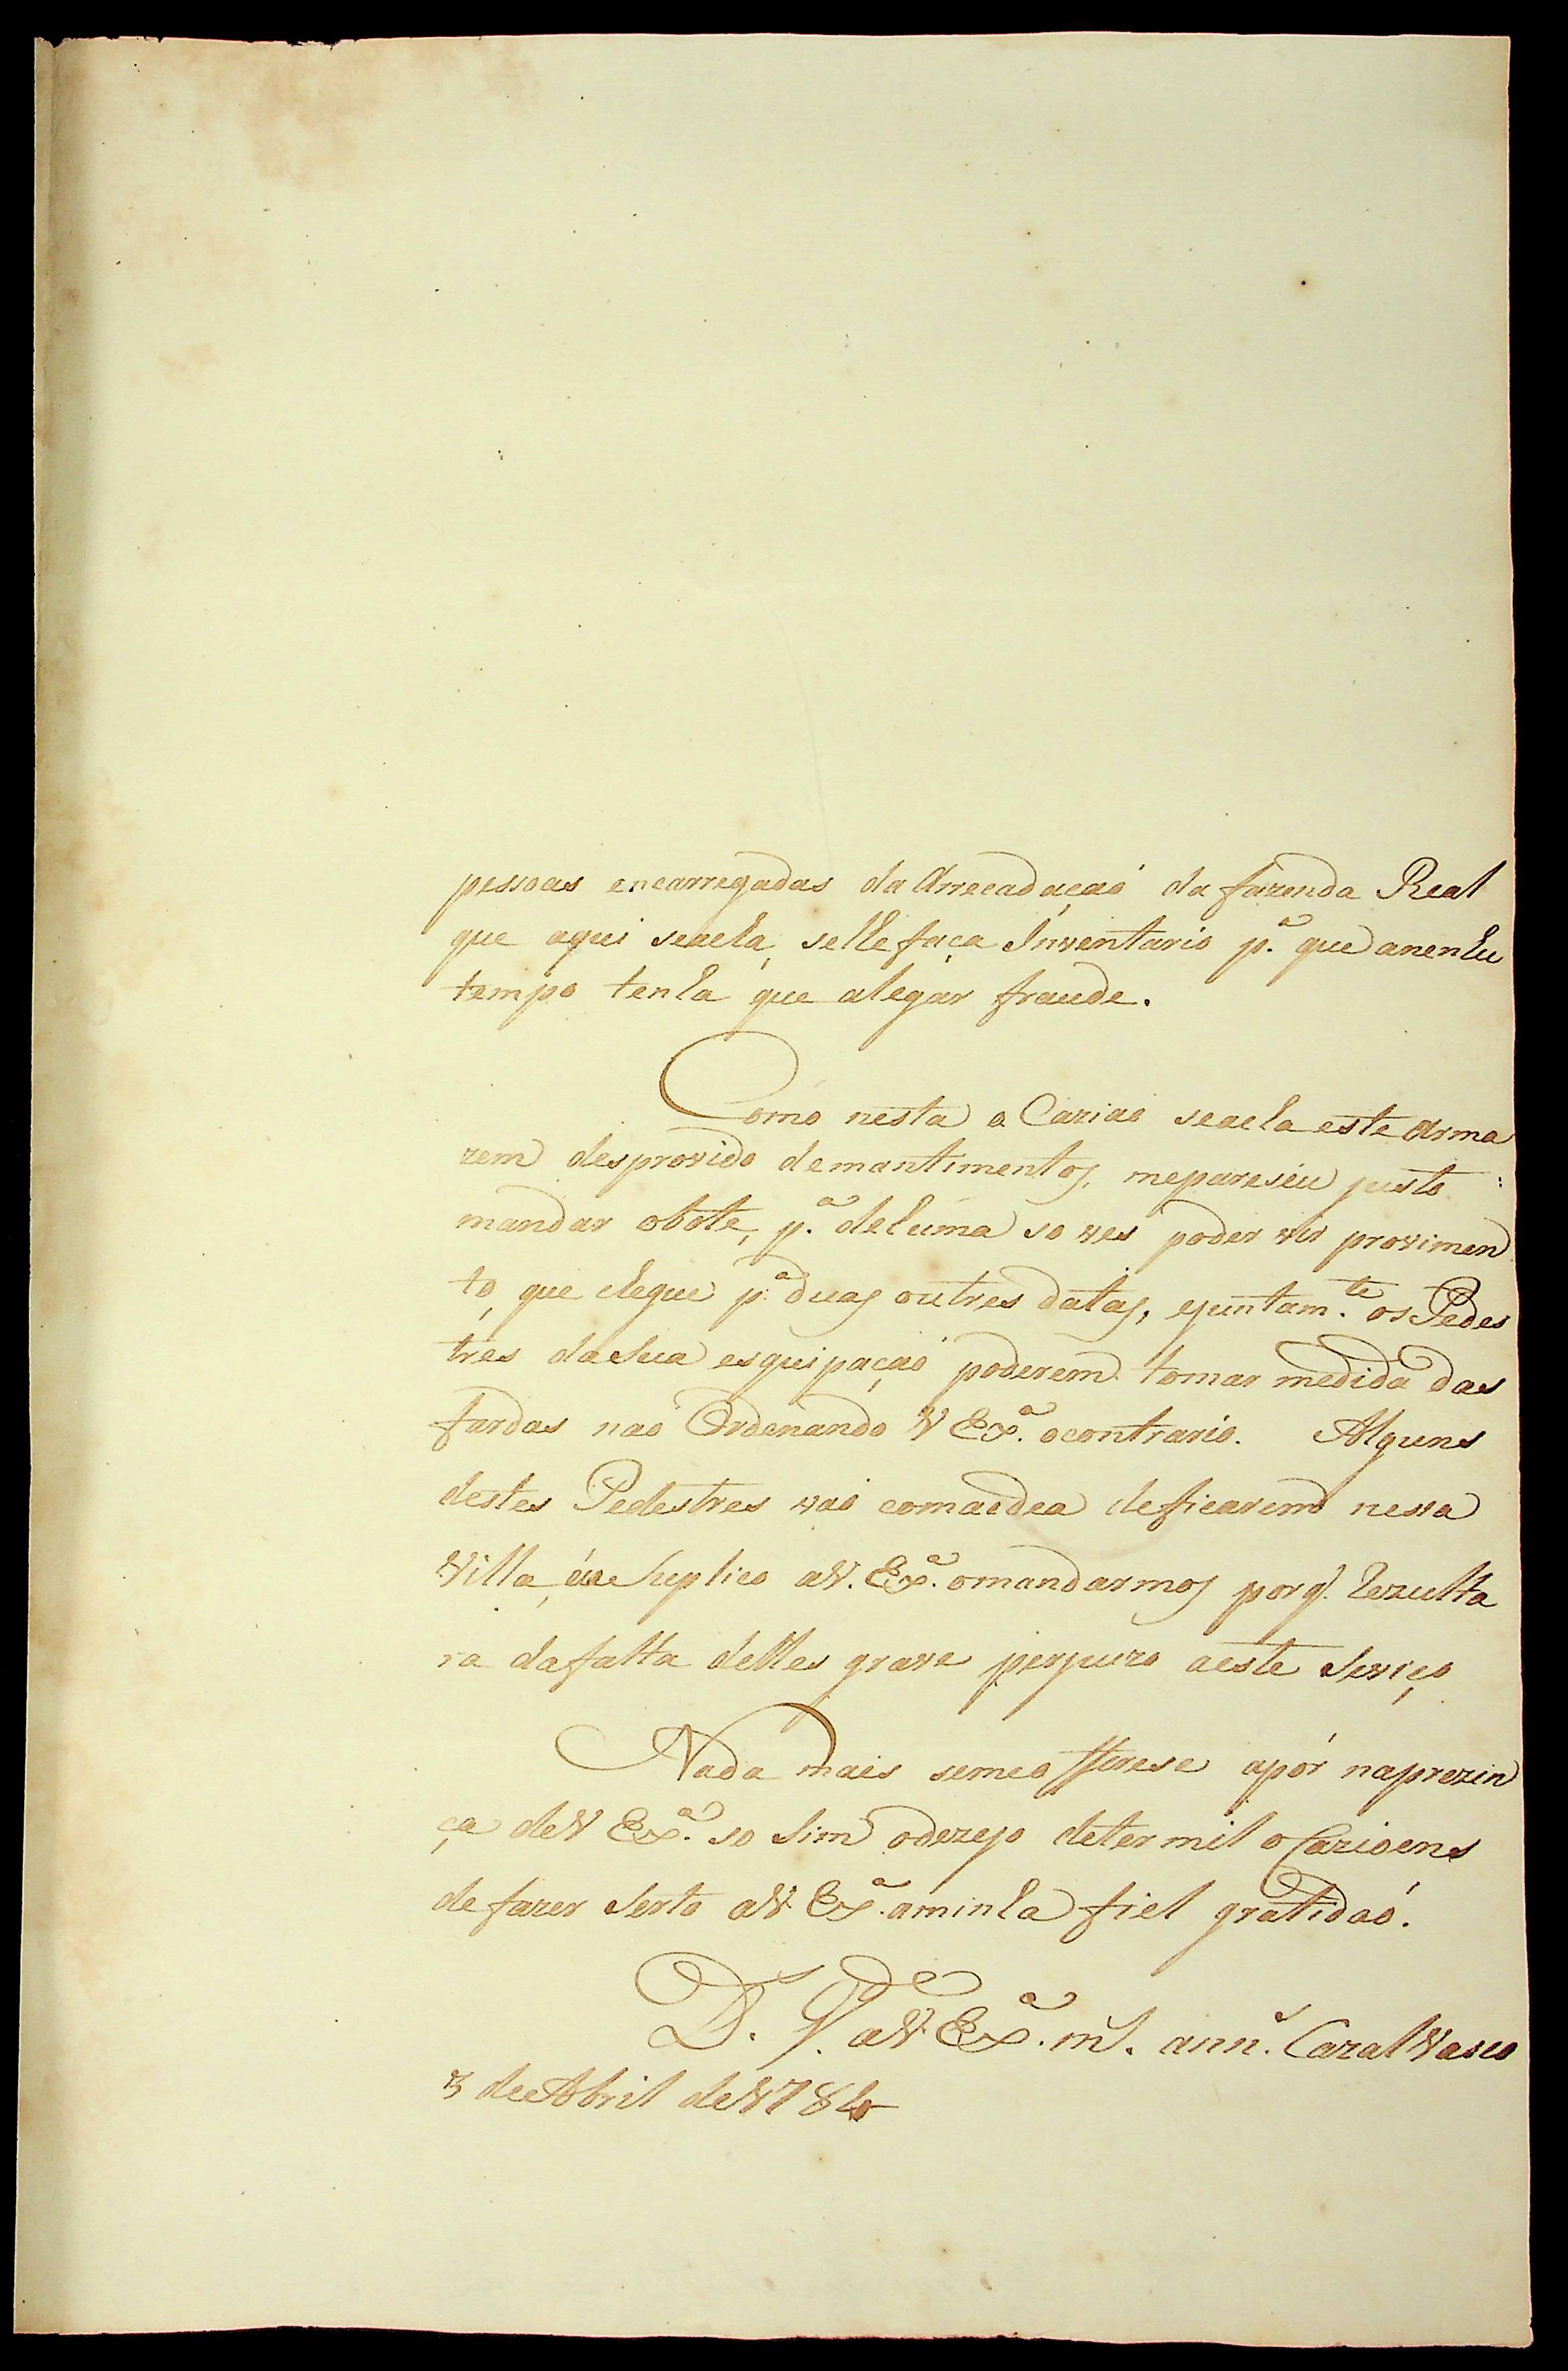 pessoas encarregadas da Arrecadaçaó da fazenda Real
que aqui seacha, selhefaça Inventario p.ª que anenhu
tempo tenha que alegar fraude.
Como nesta o Caziaó seacha este Arma
zem desprovido demantimentos, mepareséu justo
mandar obote, p.ª dehuma so ves poder vir provimen
to, que chegue p.ª duas outres datas, ejuntam.te os Pedes
tres dasua esquipaçaó poderem tomar medida das
fardas naó Ordenando V Ex.ª ocontrario. Alguns
destes Pedestres vaó comaedea deficarem nessa
Villa, Suplico aV. Ex.ª omandarmos porq. Rezulta
ra dafalta delles grave perjuizo aeste Serviço
Nada mais semeofferese apór naprezin
ça deV Ex.ª so Sim odezejo deter mil oCazioens
de fazer Serto aV. Ex.ª aminha fiel gratidaó.
D. G.de aV Ex.ª m.s ann.s CazalVasco
3 deAbril de1784